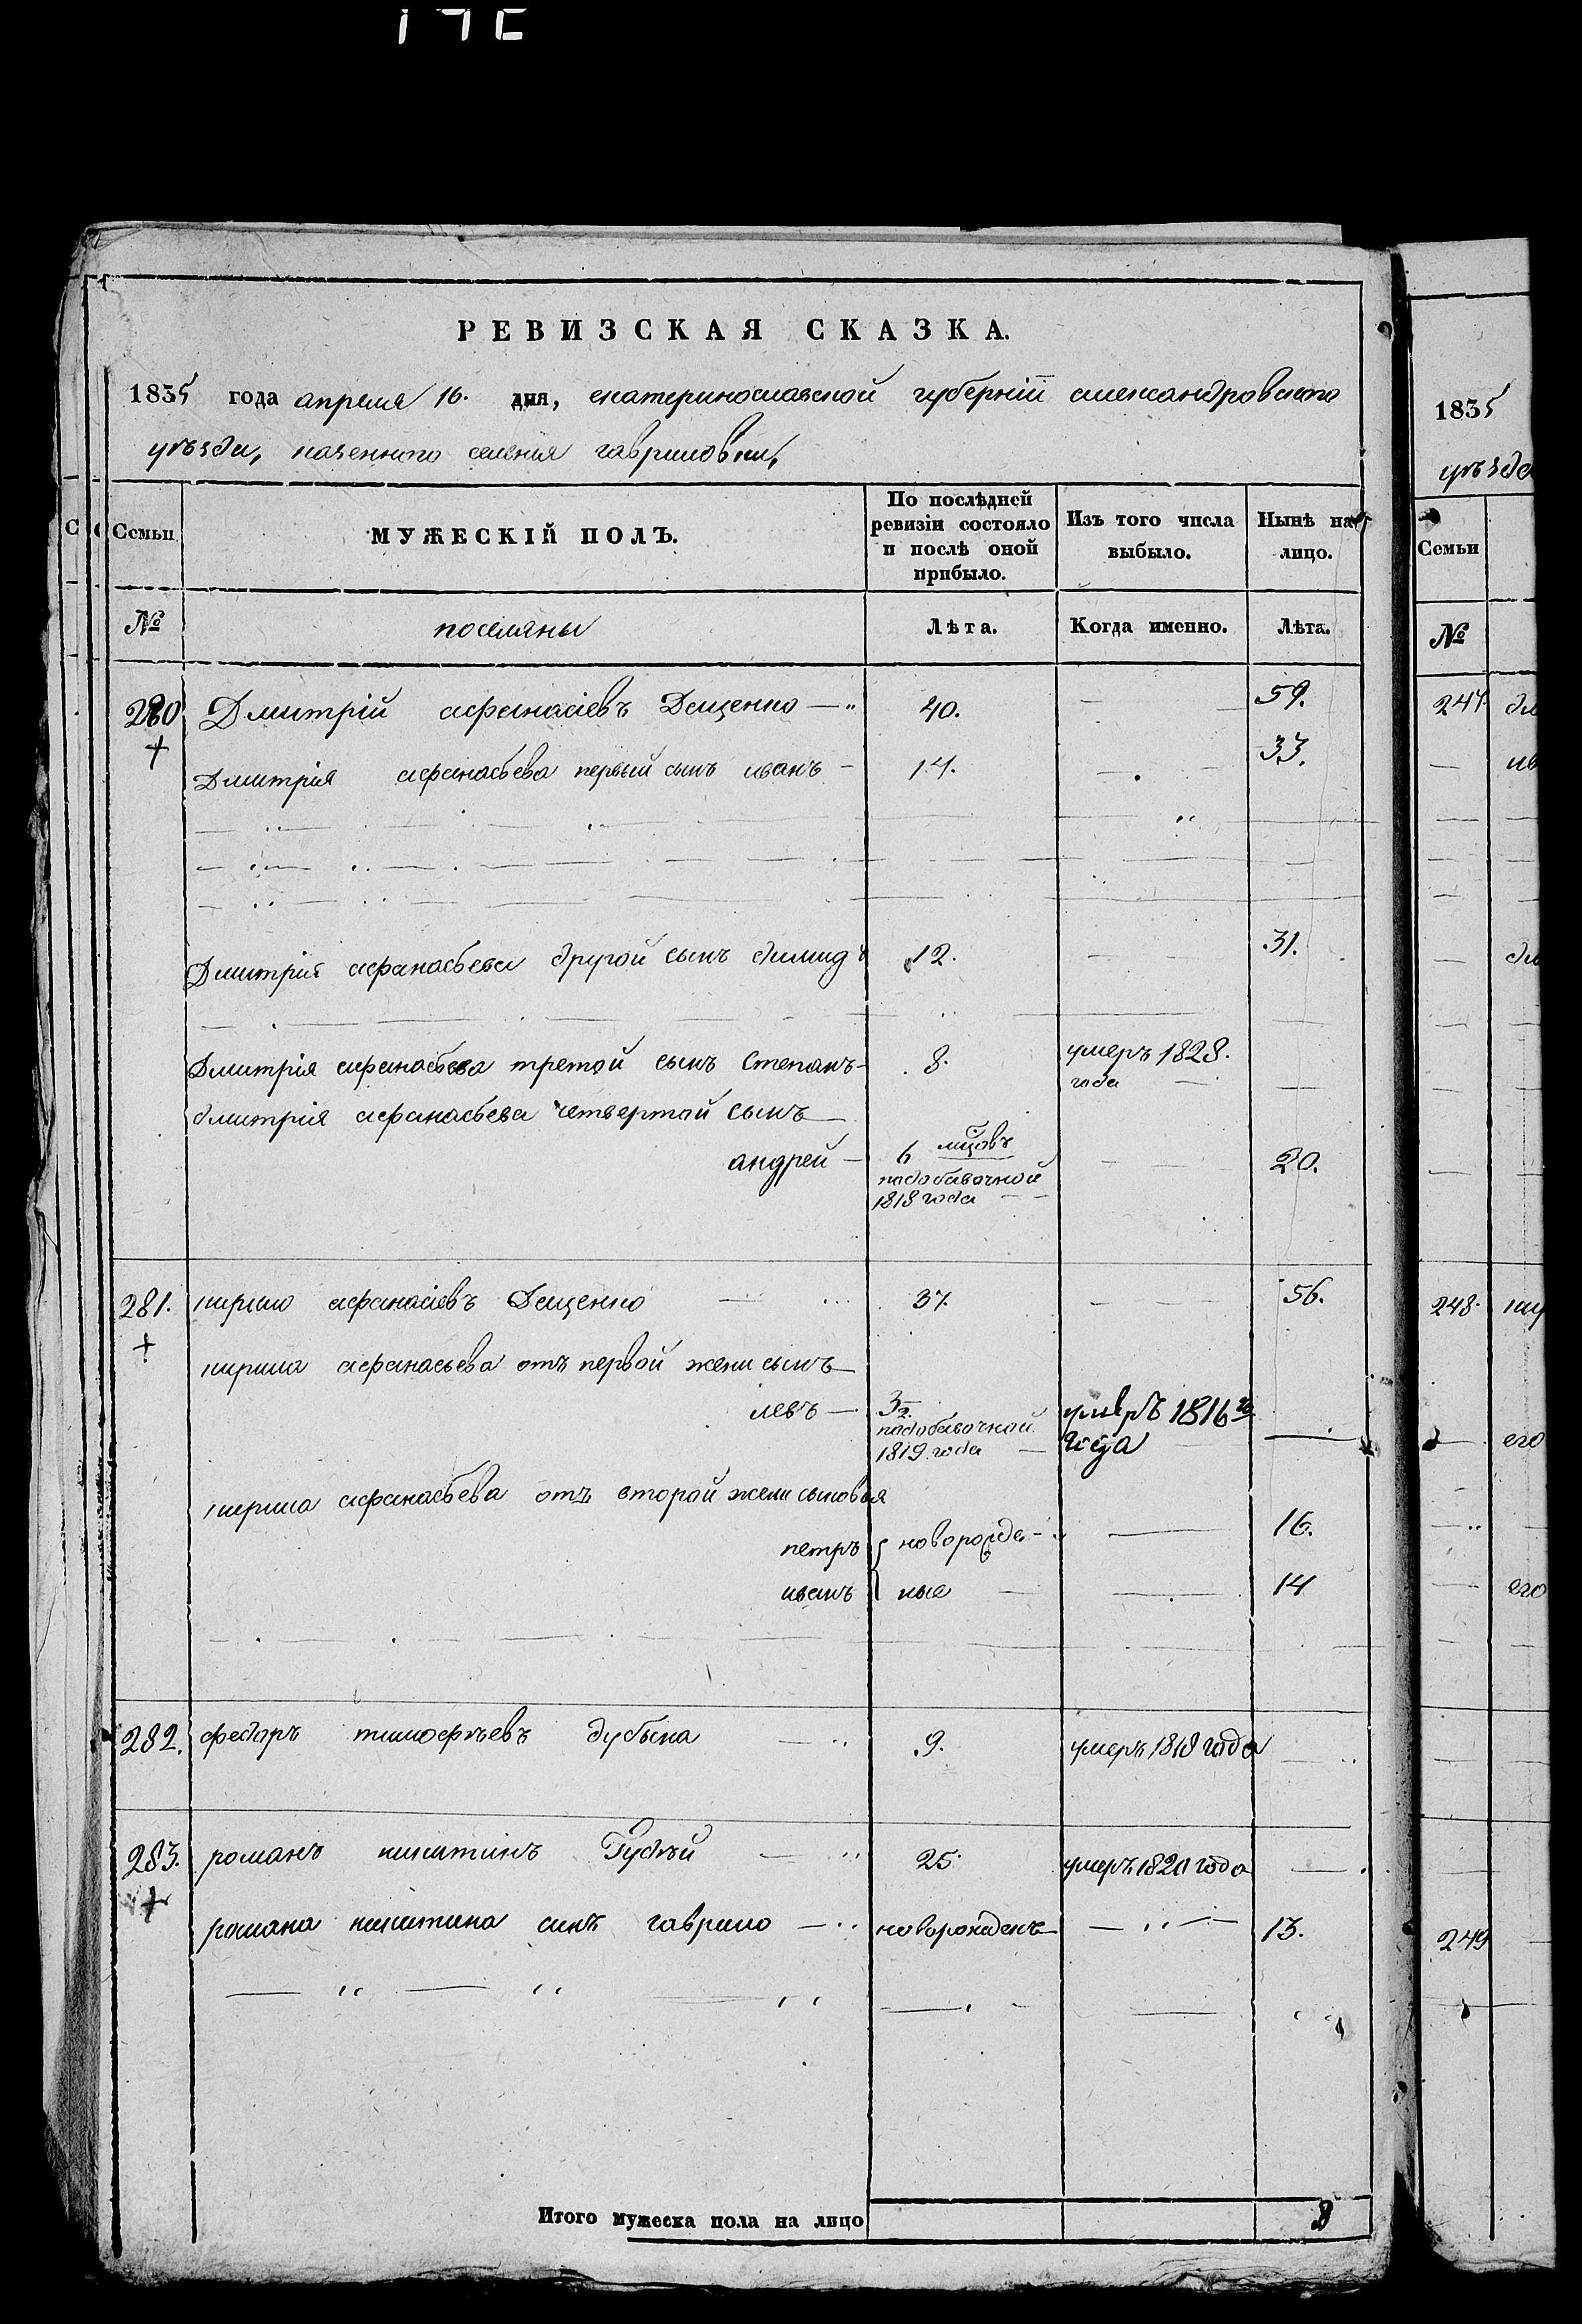 РЕВИЗСКАЯ СКАЗКА.
1835 года апреля 16. дня, екатеринославской губерніи александровского
уѣзда, казенного селения гавриловки,
Семьи
МУЖЕСКІЙ ПОЛЪ.
По послѣдней ревизіи состояло и послѣ оной прибыло.
Изъ того числа выбыло.
Нынѣ на лицо.
№ поселяны Лѣта. Когда именно. Лѣта.
280 Дмитрій афанасіевъ Дещенко — 40. — — 59.
Дмитрія афанасьева первый сынъ иванъ — 14. — — 33.
Дмитрія афанасьева другой сынъ 12. — — 31.
Дмитрія афанасьева третой сынъ Степанъ — 8. умеръ 1828.
года —
дмитрія афанасьева четвертой сынъ —
андрей — 6 — — 20.
подобавочной
1818 года — —
281. кирило афанасіевъ Дещенко — 37. — — 56.
кирила афанасьева отъ первой жени сынъ —
левъ — 3 1/2. умеръ 1816го —
подобавочной
1819. года — года
кирила афанасьева отъ второй жени сыновья
петръ новорожде- — 16.
иванъ ные — — 14
282. федоръ тимофѣевъ дубына — 9. умеръ 1818 года —
283. романъ никитинъ Гудѣй — 25 умеръ 1821 года —
романа никитина синъ гаврило — новорожденъ — — 13.
Итого мужеска пола на лицо 8
1835
уѣзда
Семьи
№
247.
248.
его
его
249